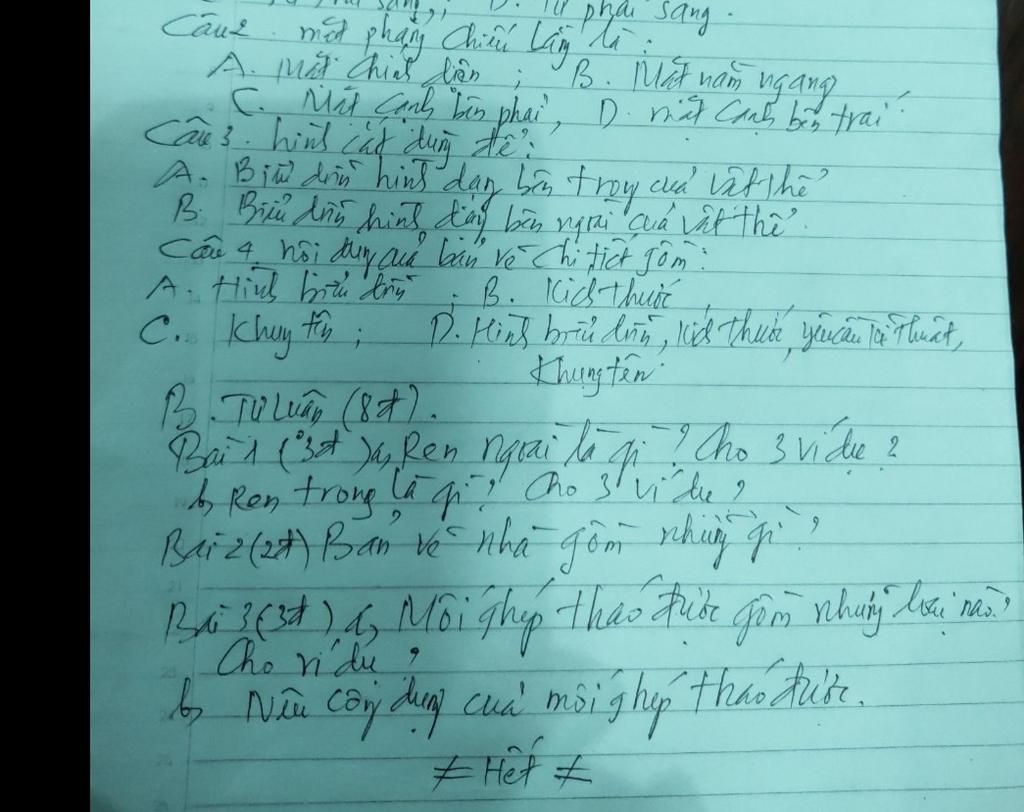 D. Từ phải sang.
Câu 2. mặt phẳng chiếu bằng là:
A. Mặt chính diện; B. Mặt nằm ngang
C. Mặt cạnh bên phải, D. mặt cạnh bên trái
Câu 3. hình cắt dùng để:
A. Biểu diễn hình dạng bên trong của vật thể
B. Biểu diễn hình dáng bên ngoài của vật thể.
Câu 4. nội dung của bản vẽ chi tiết gồm:
A. Hình biểu diễn; B. Kích thước,
C. Khung tên; D. Hình biểu diễn, kích thước, yêu cầu kĩ thuật,
Khung tên.
B. Tự luận (8đ).
Bài 1 (3đ) a, Ren ngoài là gì? Cho 3 ví dụ?
b, Ren trong là gì? Cho 3 ví dụ?
Bài 2 (2đ) Bản vẽ nhà gồm những gì?
Bài 3 (3đ) a, Mối ghép tháo được gồm những loại nào?
Cho ví dụ?
b, Nêu công dụng của mối ghép tháo được.
≠ Hết ≠